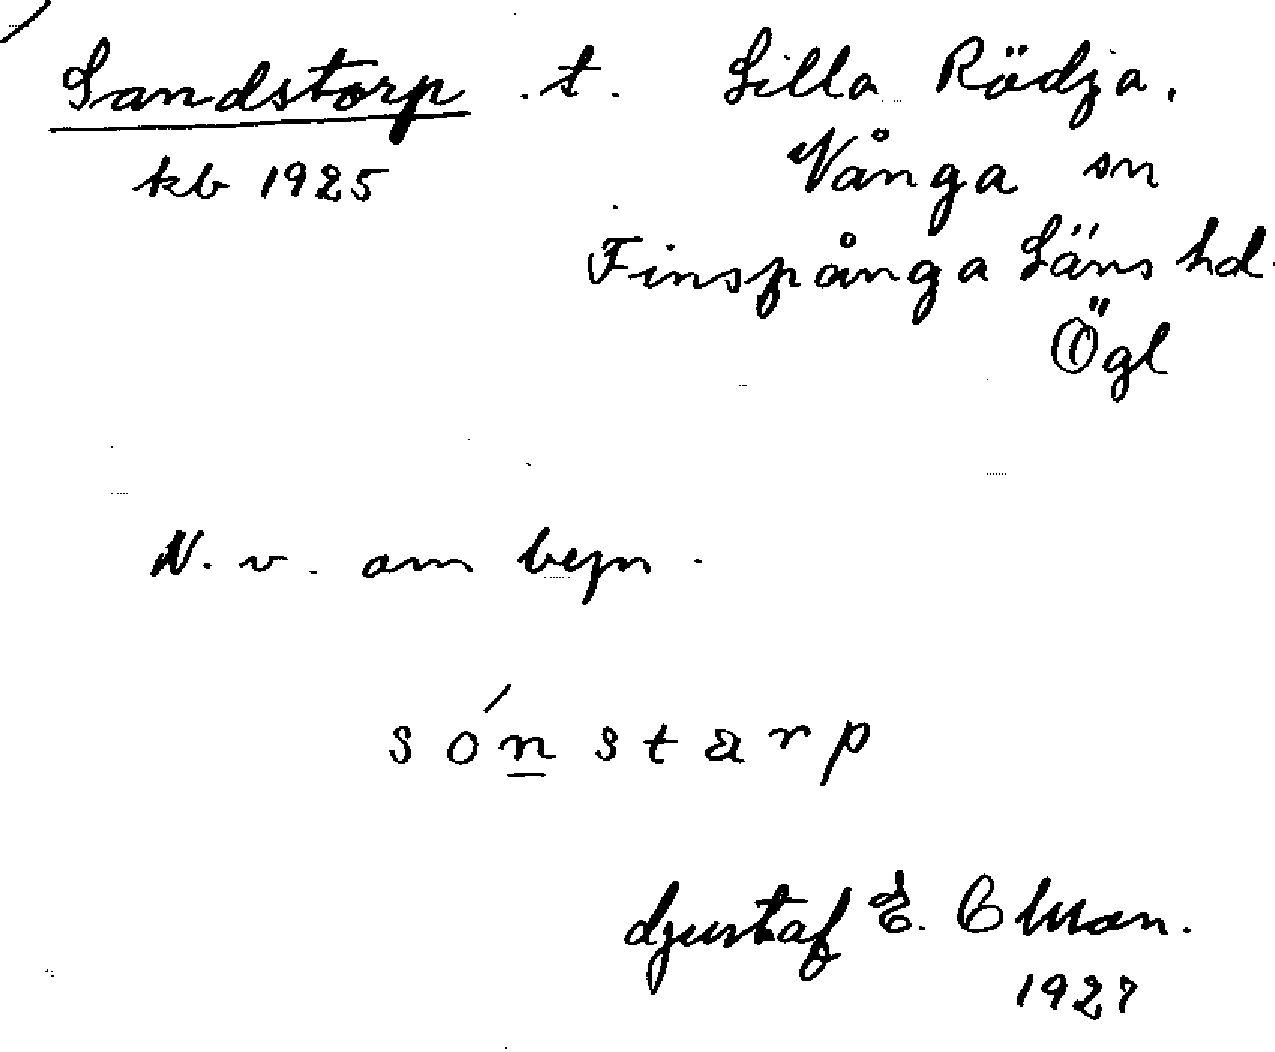 Sandstorp .t. Lilla Rödja.
kb 1925 Vånga sn
Finspånga Läns hd.
Ögl
N. v. om byn.
só̱n starp
Gustaf E.
1927